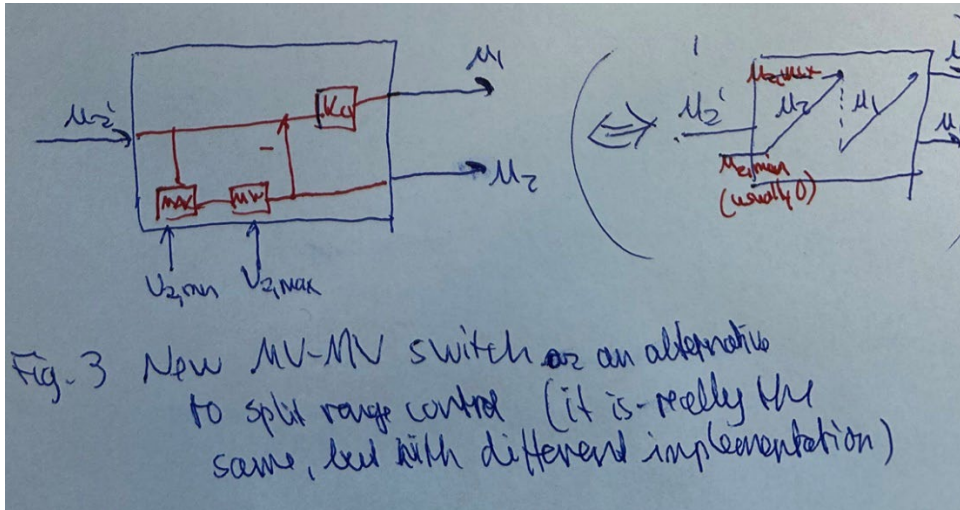 u₂'
Ku
u₁
MAX
MIN
u₂
U₂,min
U₂,max
u₂'
u₂,max
u₂
u₁
u₂,min
(usually 0)
Fig. 3 New MV-MV switch as an alternative
to split range control (it is really the
same, but with different implementation)